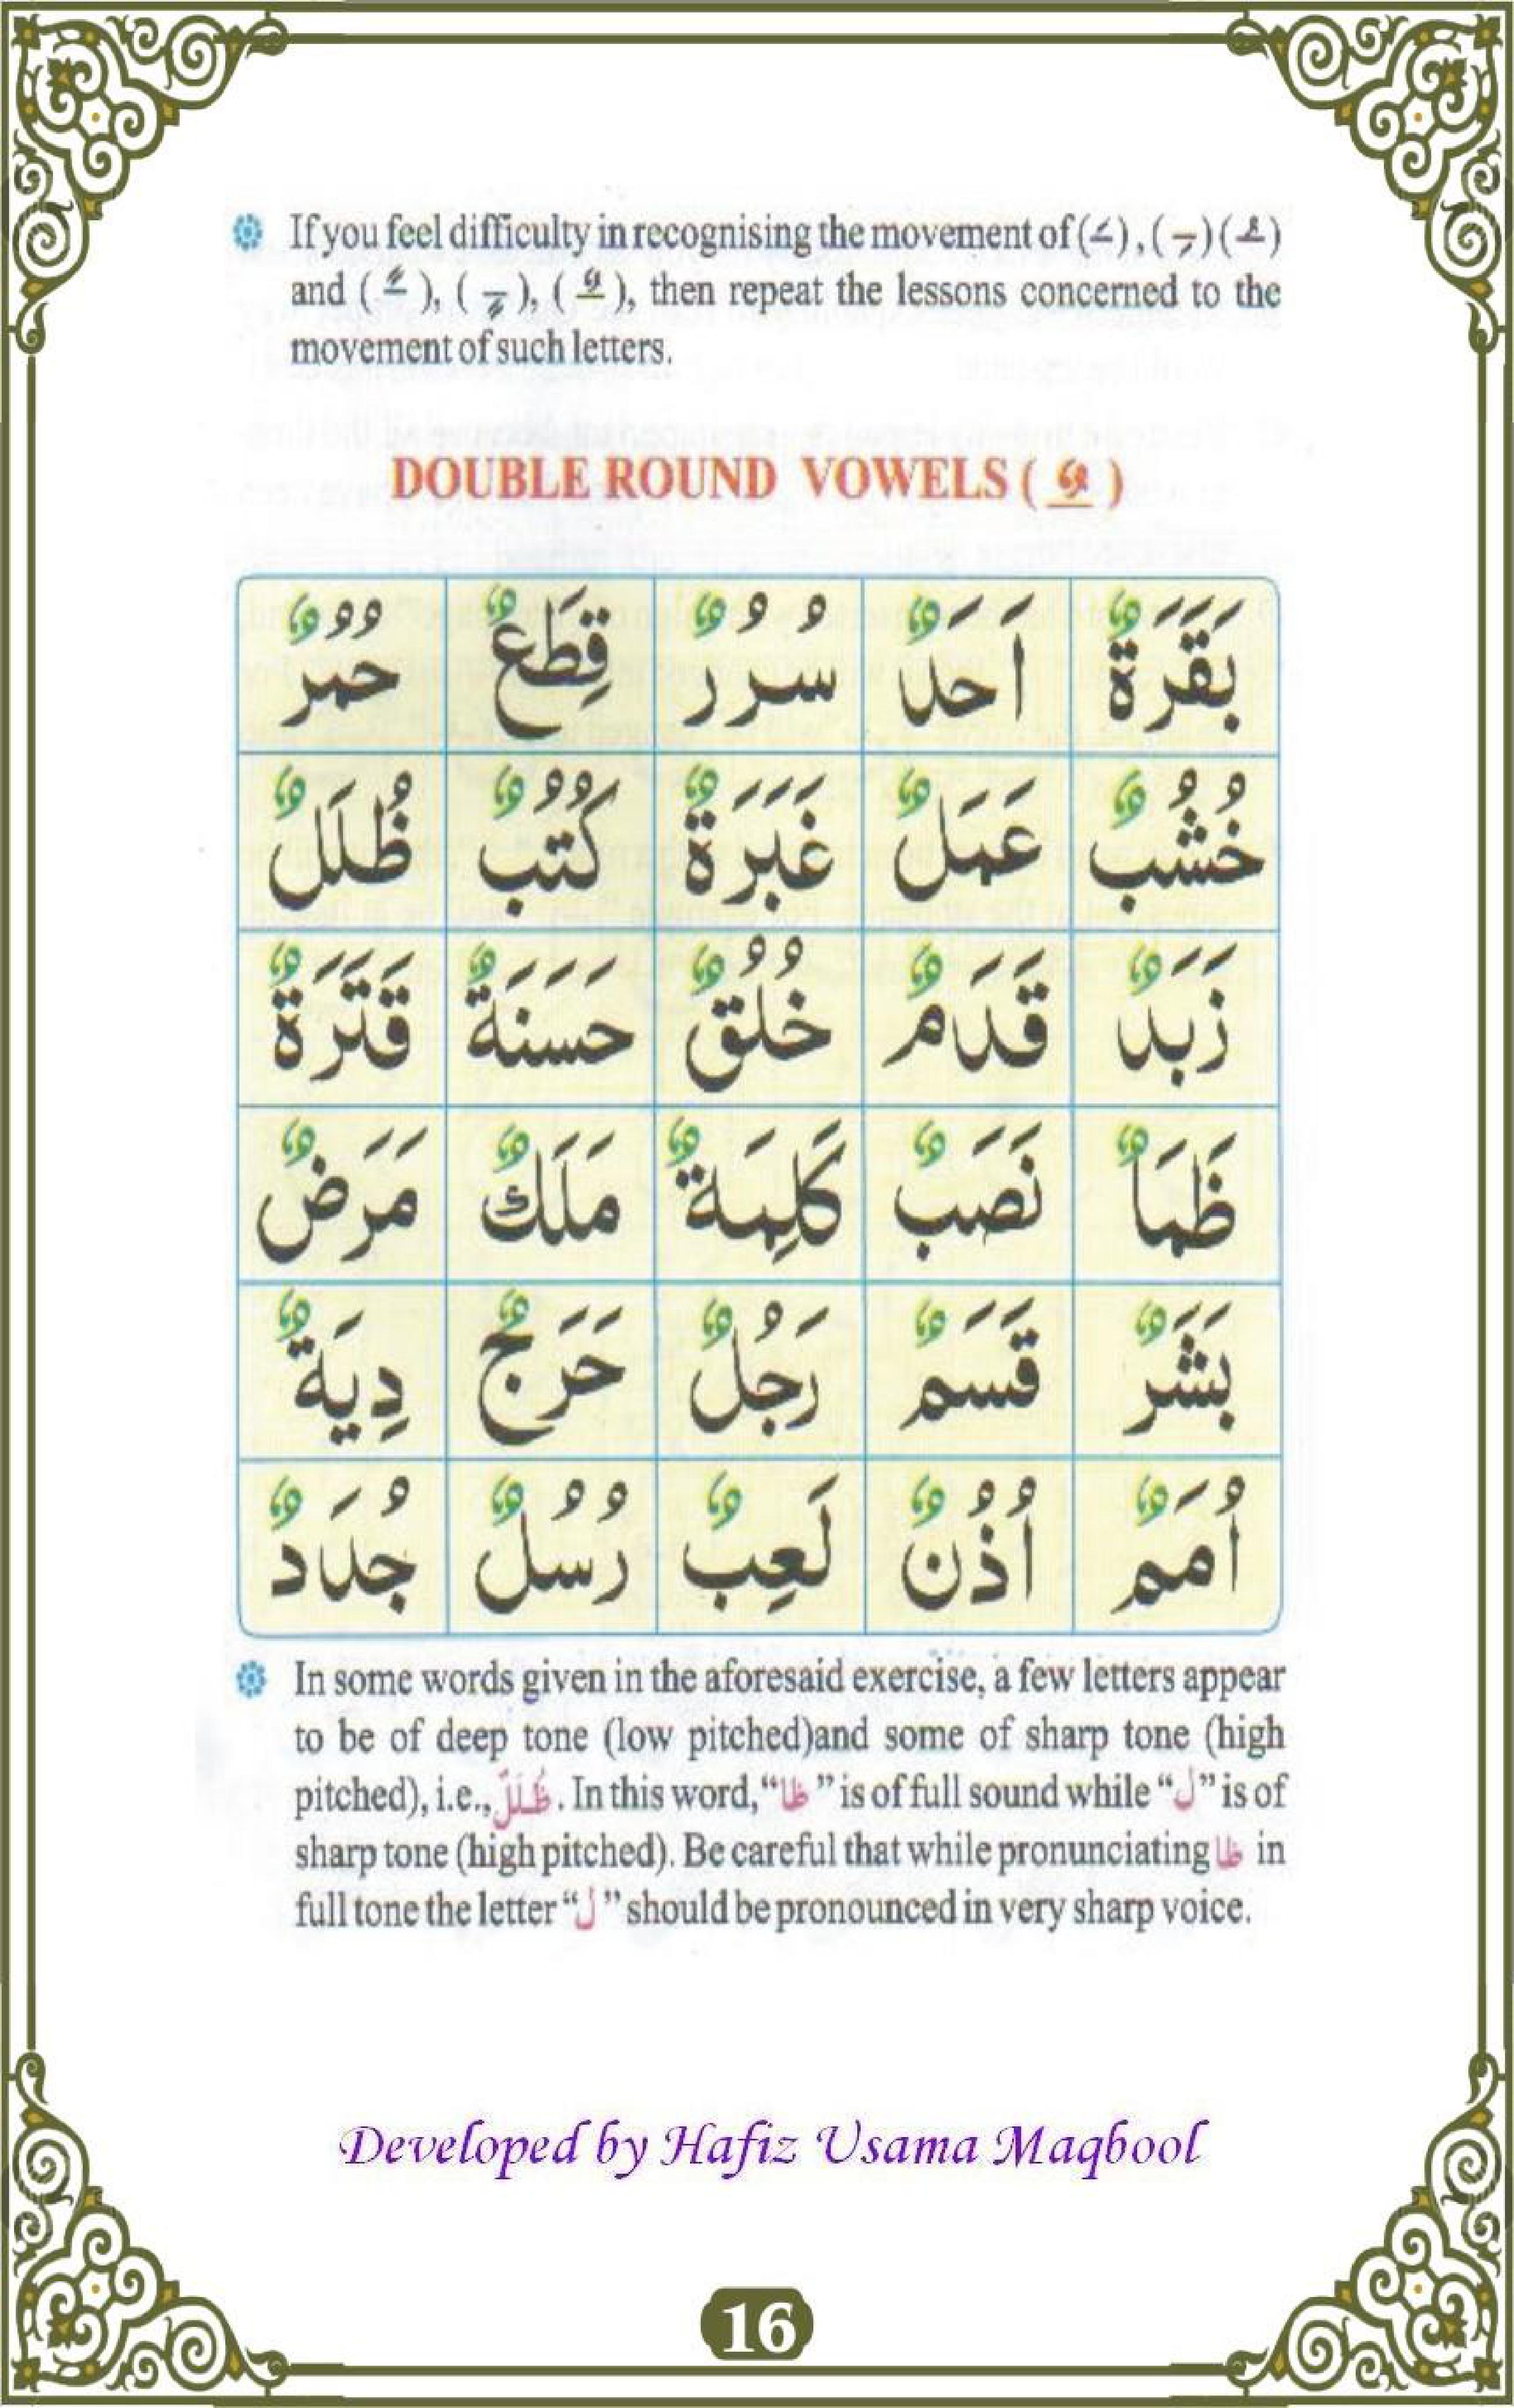 If you feel difficulty in recognising the movement of (َ), (ِ) (ُ)
and (ً), (ٍ), (ٌ), then repeat the lessons concerned to the
movement of such letters.
DOUBLE ROUND VOWELS (ٌ)
بَقَرَةٌ اَحَدٌ سُرُرٌ قِطَعٌ حُمُرٌ
خُشُبٌ عَمَلٌ غَبَرَةٌ كُتُبٌ ظُلَلٌ
زَبَدٌ قَدَمٌ خُلُقٌ حَسَنَةٌ قَتَرَةٌ
ظَمَاٌ نَصَبٌ كَلِمَةٌ مَلَكٌ مَرَضٌ
بَشَرٌ قَسَمٌ رَجُلٌ حَرَجٌ دِيَةٌ
اُمَمٌ اُذُنٌ لَعِبٌ رُسُلٌ جُدَدٌ
In some words given in the aforesaid exercise, a few letters appear
to be of deep tone (low pitched)and some of sharp tone (high
pitched), i.e., ظُلَلٌ. In this word, “ظا” is of full sound while “ل” is of
sharp tone (high pitched). Be careful that while pronunciating ظا in
full tone the letter “ل” should be pronounced in very sharp voice.
Developed by Hafiz Usama Maqbool
16